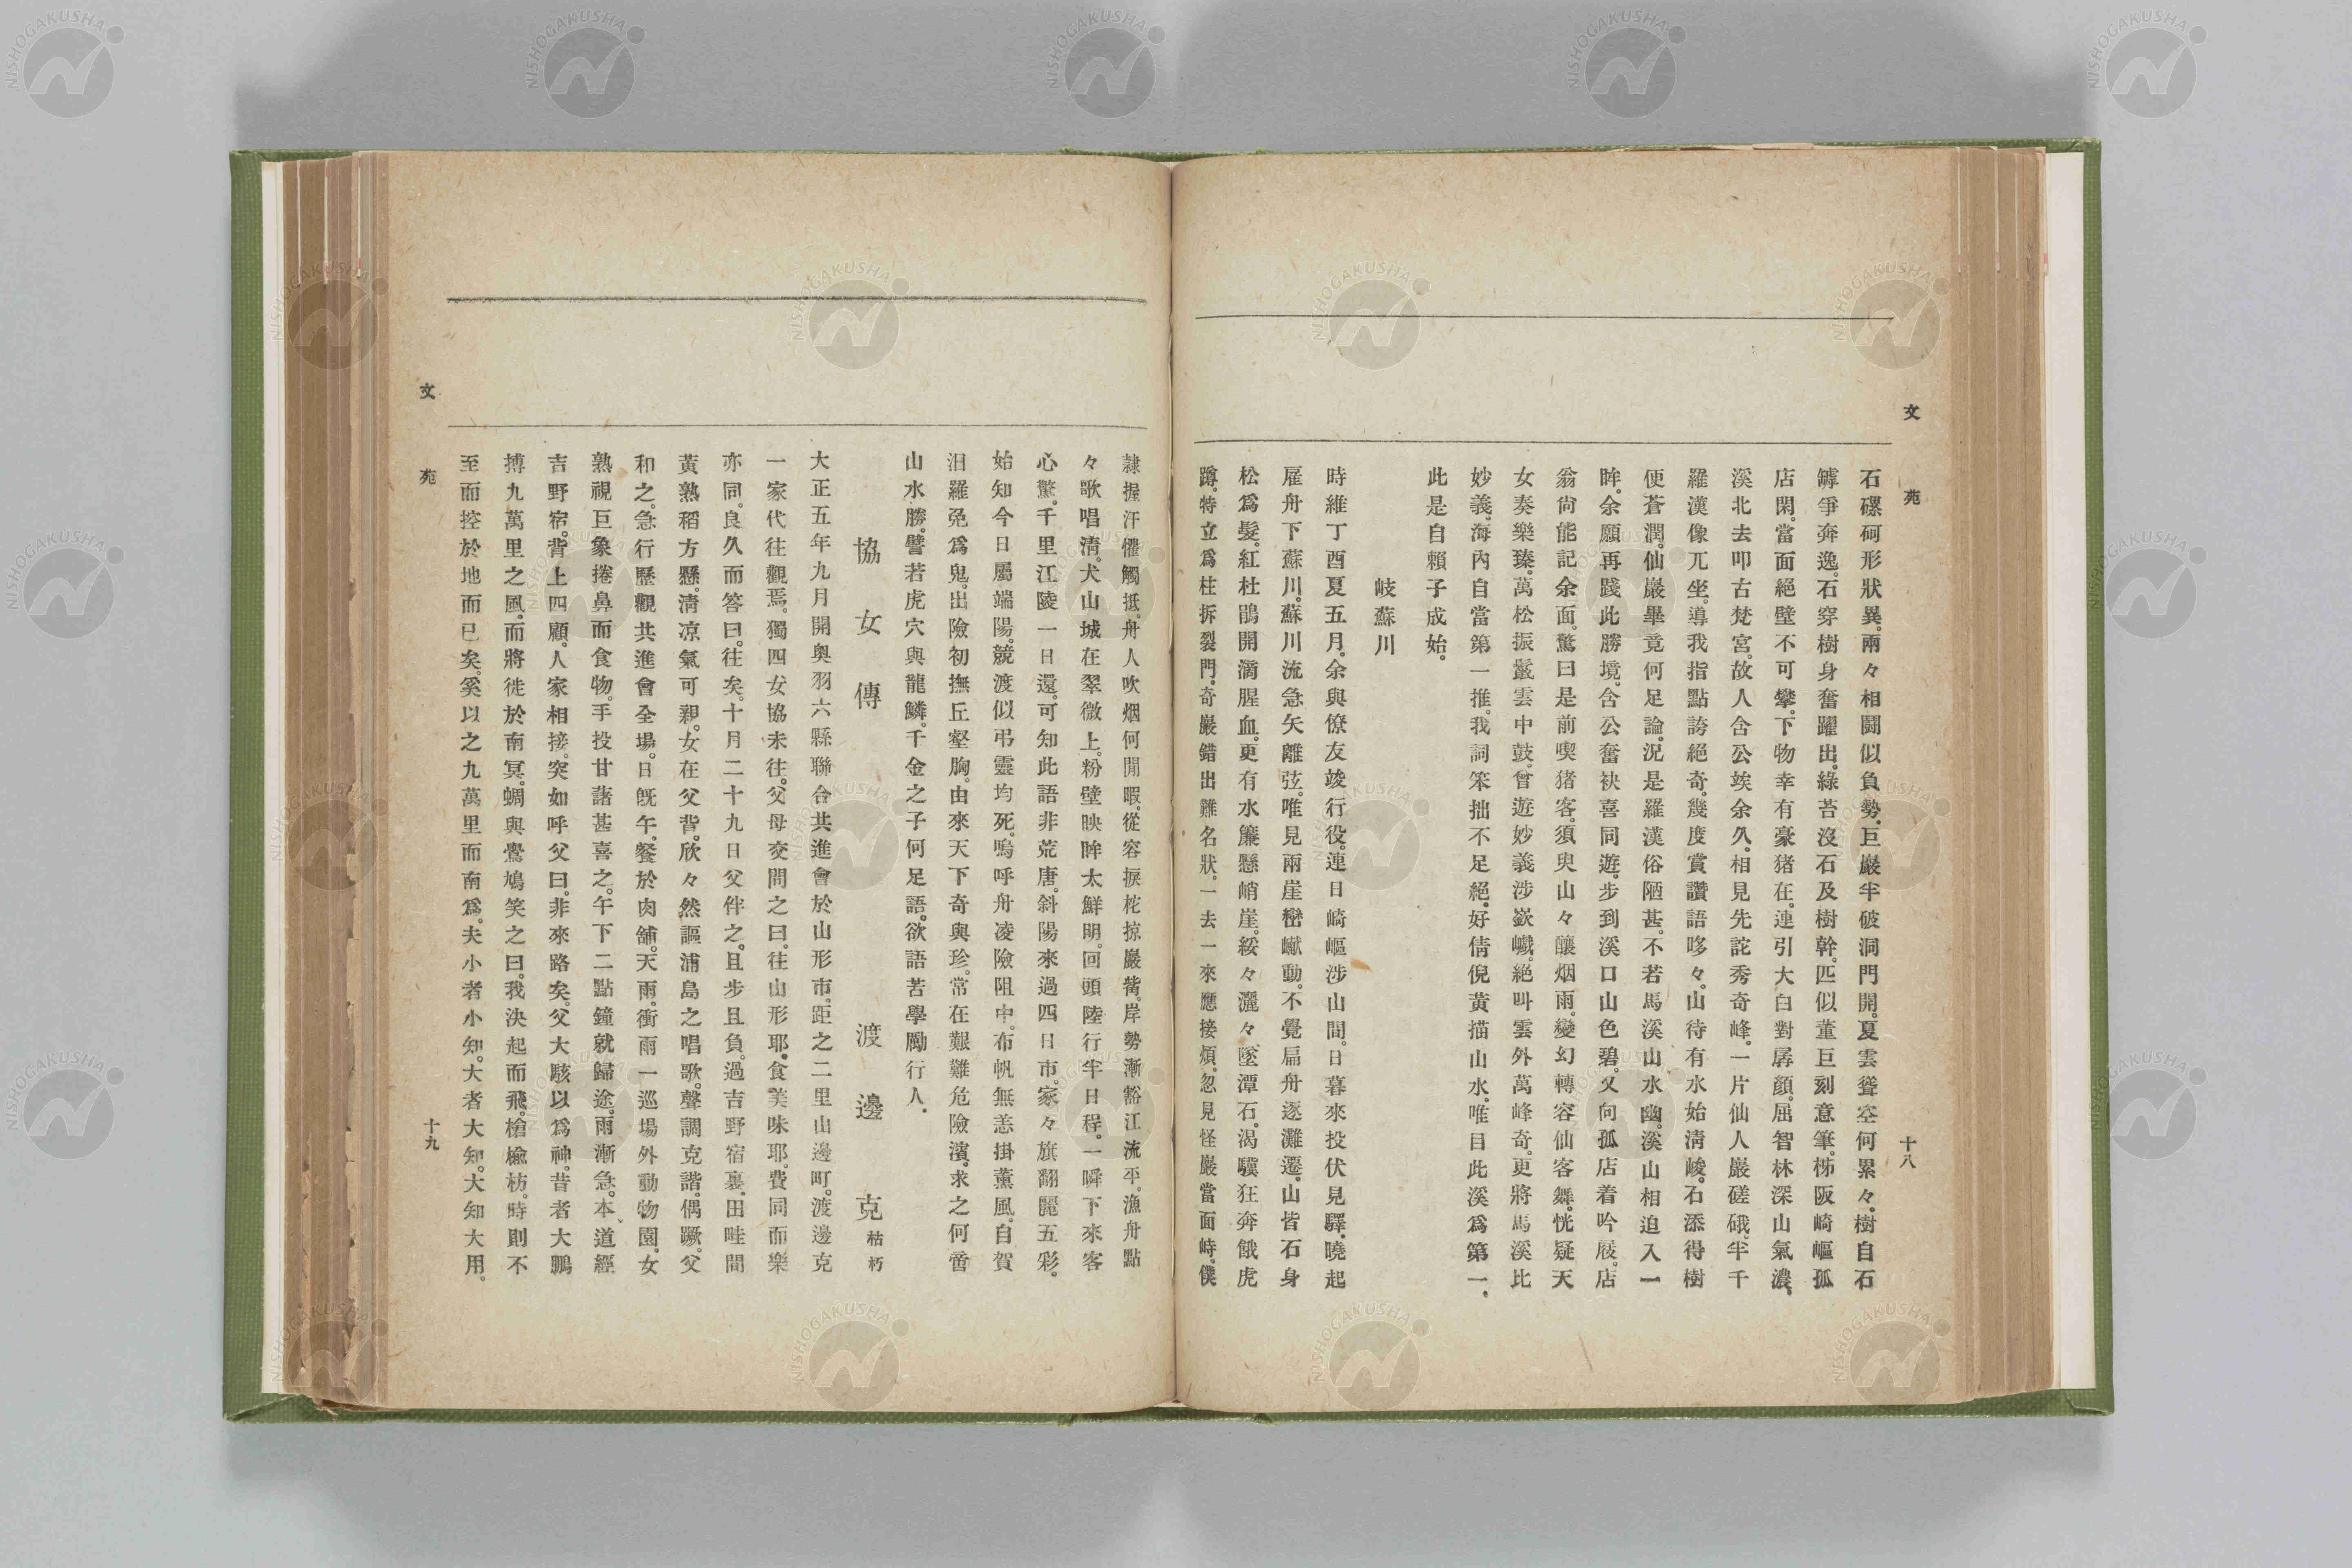 文苑
十八
石磥砢形狀異。兩々相鬪似負勢。巨巖半破洞門開。夏雲聳空何累々。樹自石
罅爭奔逸。石穿樹身奮躍出。綠苔沒石及樹幹。匹似董巨刻意筆。柹阪崎嶇孤
店閑。當面絕壁不可攀。下物幸有豪猪在。連引大白對孱顏。屈智林深山氣濃。
溪北去叩古梵宮。故人含公竢余久。相見先詫秀奇峰。一片仙人巖磋硪。半千
羅漢像兀坐。導我指點誇絕奇。幾度賞讚語哆々。山待有水始淸峻。石添得樹
便蒼潤。仙巖畢竟何足論。況是羅漢俗陋甚。不若馬溪山水幽。溪山相迫入一
眸。余願再踐此勝境。含公奮袂喜同遊。步到溪口山色碧。又向孤店着吟屐。店
翁尙能記余面。驚曰是前喫猪客。須臾山々釀烟雨。變幻轉容仙客舞。恍疑天
女奏樂臻。萬松振鬣雲中鼓。曾遊妙義涉嶔巇。絕叫雲外萬峰奇。更將馬溪比
妙義。海內自當第一推。我詞笨拙不足絕。好倩倪黃描山水。唯目此溪爲第一。
此是自賴子成始。
岐蘇川
時維丁酉夏五月。余與僚友竣行役。連日崎嶇涉山間。日暮來投伏見驛。曉起
雇舟下蘇川。蘇川流急矢離弦。唯見兩崖巒巘動。不覺扁舟逐灘遷。山皆石身
松爲髮。紅杜鵑開滴腥血。更有水簾懸峭崖。綏々灑々墜潭石。渴驥狂奔餓虎
蹲。特立爲柱拆裂門。奇巖錯出難名狀。一去一來應接煩。忽見怪巖當面峙。僕
隷握汗懼觸抵。舟人吹烟何閒暇。從容捩柁掠巖觜。岸勢漸豁江流平。漁舟點
々歌唱淸。犬山城在翠微上。粉壁映眸太鮮明。回頭陸行半日程。一瞬下來客
心驚。千里江陵一日還。可知此語非荒唐。斜陽來過四日市。家々旗翻麗五彩。
始知今日屬端陽。競渡似弔靈均死。嗚呼舟凌險阻中。布帆無恙掛薰風。自賀
汨羅免爲鬼。出險初撫丘壑胸。由來天下奇與珍。常在艱難危險濱。求之何啻
山水勝。譬若虎穴與龍鱗。千金之子何足語。欲語苦學勵行人。
協女傳　渡邊克枯朽
大正五年九月開奧羽六縣聯合共進會於山形市。距之二里山邊町。渡邊克
一家代往觀焉。獨四女協未往。父母交問之曰。往山形耶。食美味耶。費同而樂
亦同。良久而答曰。往矣。十月二十九日父伴之。且步且負。過吉野宿裏。田畦間
黃熟稻方懸。淸凉氣可親。女在父背。欣々然謳浦島之唱歌。聲調克諧。偶蹶。父
和之。急行歷觀共進會全場。日旣午。餐於肉舖。天雨。衝雨一巡場外動物園。女
熟視巨象捲鼻而食物。手投甘藷甚喜之。午下二點鐘就歸途。雨漸急。本道經
吉野宿。背上四顧。人家相接。突如呼父曰。非來路矣。父大駭以爲神。昔者大鵬
搏九萬里之風。而將徙於南冥。蜩與鷽鳩笑之曰。我決起而飛。槍楡枋。時則不
至而控於地而已矣。奚以之九萬里而南爲。夫小者小知。大者大知。大知大用。
文苑
十九